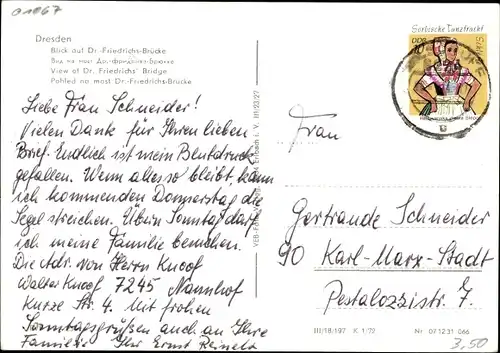 01067
Dresden
Blick auf Dr.-Friedrichs-Brücke
Вид на мост Др.-Фридрихс-Брюкке
View of Dr. Friedrichs' Bridge
Pohled na most Dr.-Friedrichs-Brücke
Liebe Frau Schneider!
Vielen Dank für Ihren lieben
Brief. Endlich ist mein Blutdruck
gefallen. Wenn alles so bleibt, kann
ich kommenden Donnerstag die
Segel streichen. Übern Sonntag darf
ich meine Familie besuchen.
Die Adr. von Herrn Knoof
Walter Knoof 7245 Naunhof
Kurze Str. 4. Mit frohen
Sonntagsgrüßen auch an Ihre
Familie Ihr Ernst Reinelt
III/23/27
Sorbische Tanztracht
DDR
10
Frau
Gertraude Schneider
90 Karl-Marx-Stadt
Pestalozzistr. 7.
III/18/197 K 1/72 Nr 07 12 31 066
3,50